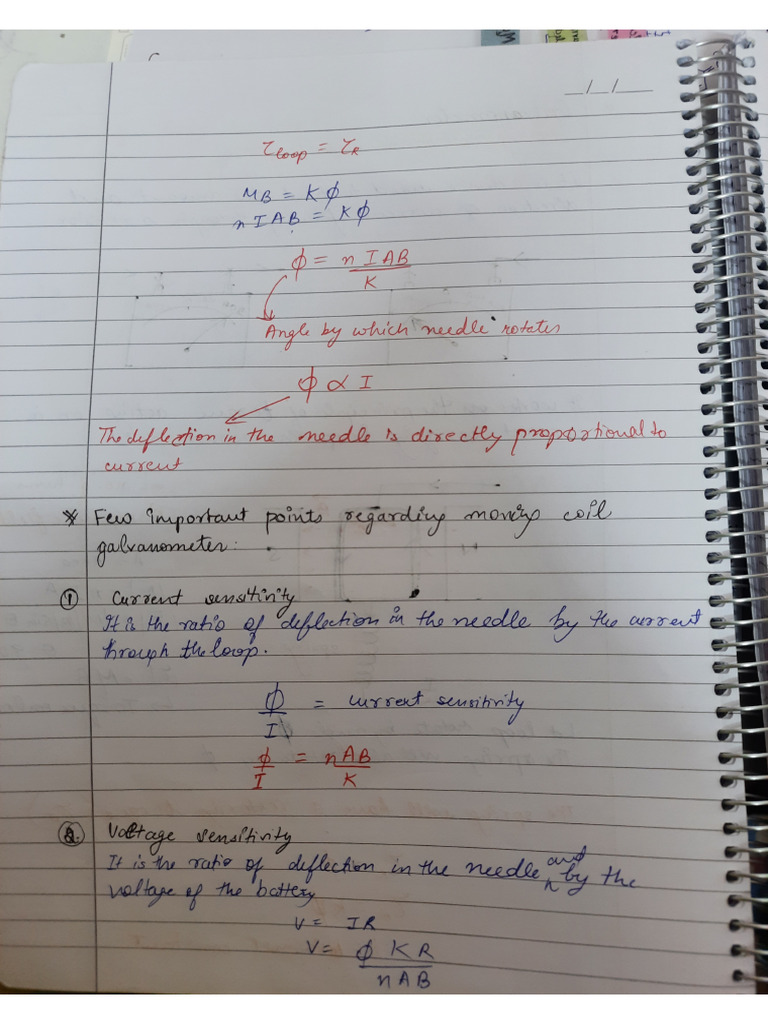 _/_/_
τloop = τR
MB = Kϕ
nIAB = Kϕ
ϕ = nIAB/K
Angle by which needle rotates
ϕ ∝ I
The deflection in the needle is directly proportional to
current
* Few important points regarding moving coil
galvanometer:
① Current sensitivity
It is the ratio of deflection in the needle by the current
through the loop.
ϕ/I = current sensitivity
ϕ/I = nAB/K
② Voltage sensitivity
It is the ratio of deflection in the needle and by the
voltage of the battery
V = IR
V = ϕKR/nAB